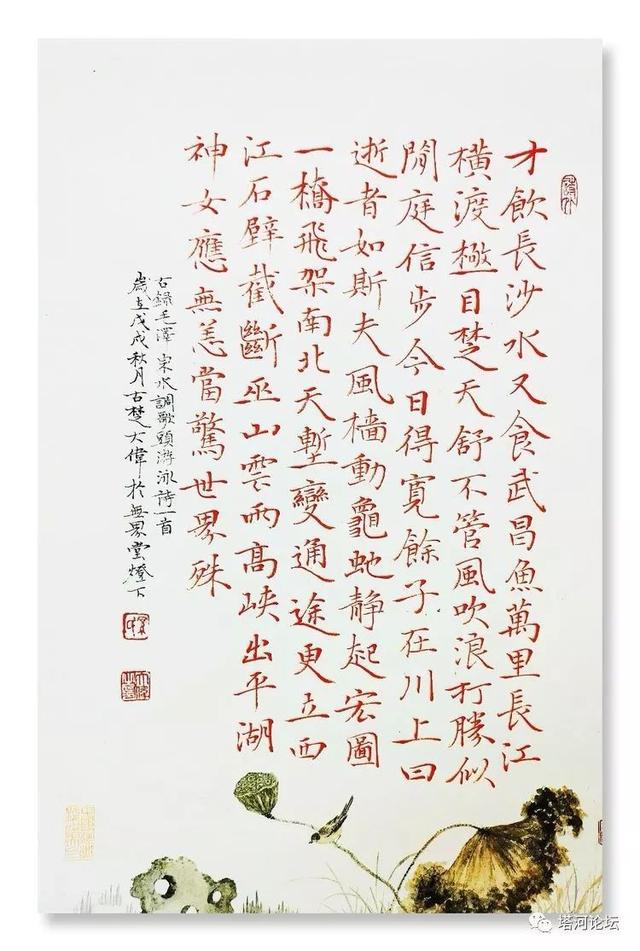 才飲長沙水又食武昌魚萬里長江
橫渡極目楚天舒不管風吹浪打勝似
閒庭信步今日得寬餘子在川上曰
逝者如斯夫風檣動龜虵静起宏圖
一橋飛架南北天塹變通途更立西
江石壁截斷巫山雲雨高峽出平湖
神女應無恙當驚世界殊
右錄毛澤東水調歌頭游泳詩一首
歲在戊戌秋月古楚大偉於無界堂燈下
塔河论坛